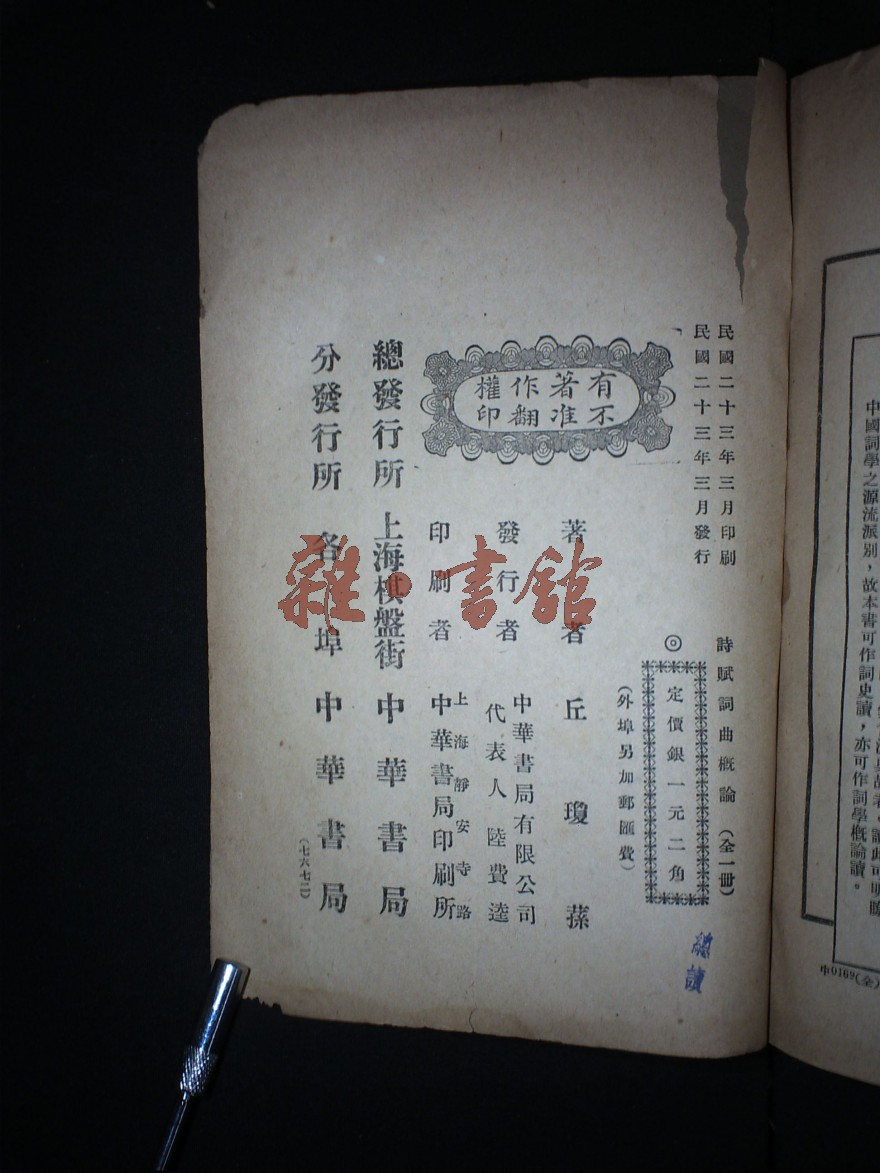 民國二十三年三月印刷
民國二十三年三月發行
詩賦詞曲概論（全一冊）
◎
定價銀一元二角
（外埠另加郵匯費）
有著作權
不准翻印
著者 丘瓊蓀
發行者 中華書局有限公司
代表人 陸費逵
印刷者 上海靜安寺路
中華書局印刷所
總發行所 上海棋盤街 中華書局
分發行所 各埠 中華書局
（七六七二）
雜·書館
中國詞學之源流派別，故本書可作詞史讀，亦可作詞學概論讀。
中0169(全)